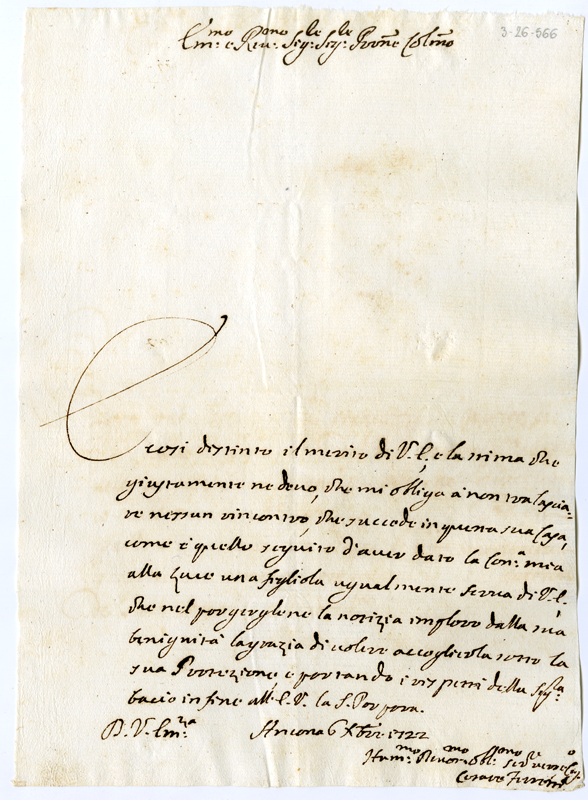 3-26-566
Em:mo e Rev:mo Sig:re Sig:re Prone Colmo
È cosi distinto il merito di V.E, e la stima che
giustamente ne devo, che mi obliga à non tralascia-
re nessun rincontro, che succede in questa sua Casa,
come è quello seguito d'aver dato la Con:te mia
alla luce una figliola ugualmente serva di V.E.
che nel porgerglene la notizia imploro dalla sua
benignità la grazia di volere accoglierla sotto la
sua Protezione, e portando i rispetti della
bacio in fine all'E.V. la S. Porpora.
D. V. Em:za Ancona 6 Xbre 1722
Hum:mo Devmo Obl:mo
Cesare